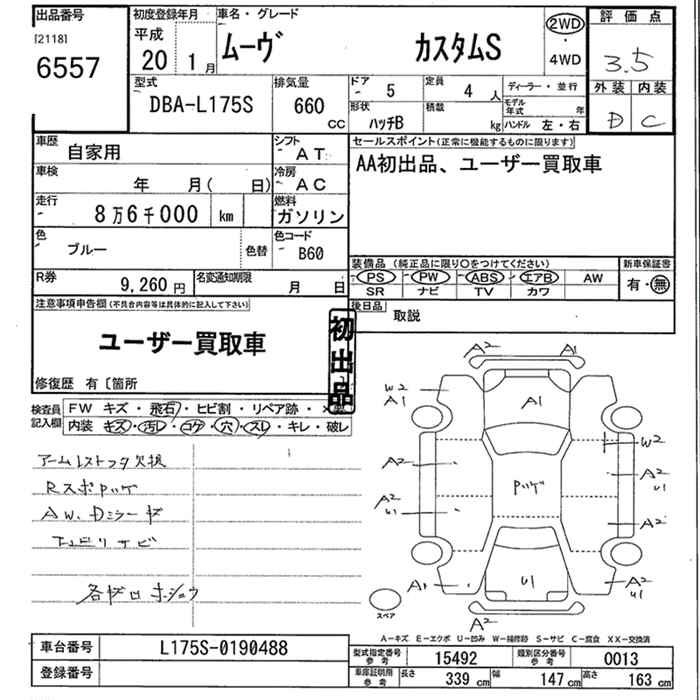 出品番号
[2118]
6557
初度登録年月
平成
20 1月
車名・グレード
ムーヴ カスタムS
2WD
・
4WD
評価点
3.5
外装 内装
D C
型式
DBA-L175S
排気量
660
CC
ドア
5
定員
4 人
ディーラー・並行
形状
ハッチB
積載
kg
モデル
年式 年
ハンドル 左・右
車歴
自家用
シフト
AT
セールスポイント(正常に機能するものに限ります)
AA初出品、ユーザー買取車
車検
年 月( 日)
冷房
AC
走行
8万6千000 km
燃料
ガソリン
色
ブルー
色替
色コード
B60
装備品(純正品に限り○をつけてください)
PS PW ABS エアB AW
SR ナビ TV カワ
新車保証書
有・無
R券
9,260 円
名変通知期限
月 日
後日品
取説
注意事項申告欄(不具合内容等は具体的に記入して下さい)
ユーザー買取車
初出品
修復歴 有〔箇所
検査員
記入欄
FW キズ・飛石・ヒビ割・リペア跡・
内装 キズ・汚レ・コゲ・穴・スレ・キレ・破レ
アームレストフタ欠損
AW、Dミラーキズ
A2 A1
W2
A1
A1
W2
A2
A2
U1
A2
U1
A2
A1
U1
A2
U1
A2
スペア
A−キズ E−エクボ U−凹み W−補修跡 S−サビ C−腐食 XX−交換済
車台番号
L175S-0190488
登録番号
型式指定番号
参考
15492
類別区分番号
参考
0013
車庫証明用
参考
長さ 339 cm
幅 147 cm
高さ 163 cm